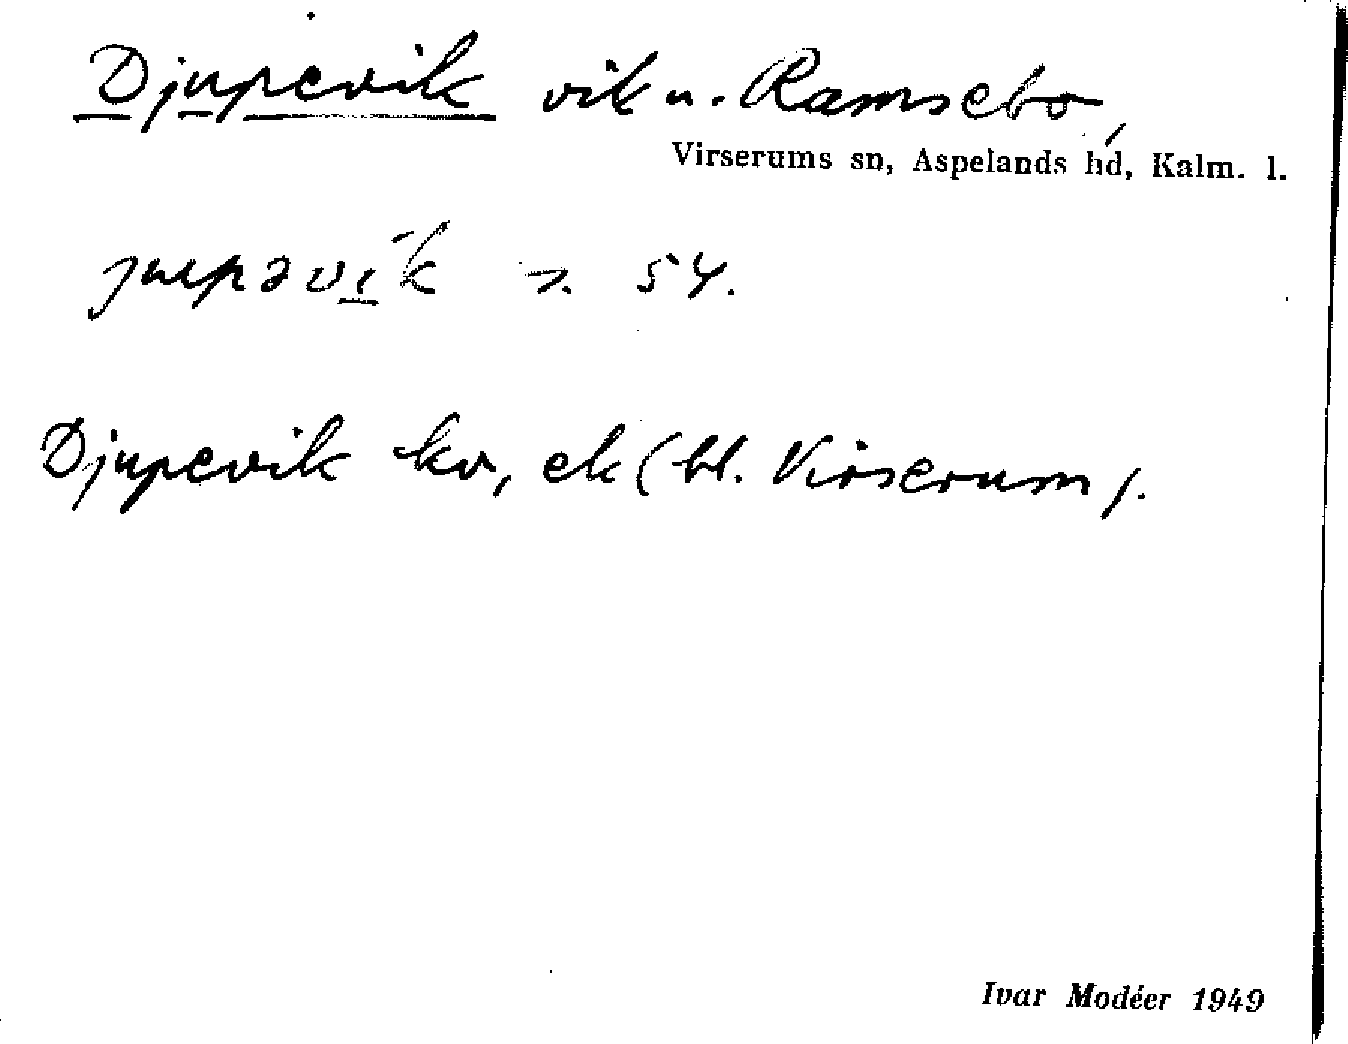 Djupevik vik u. Ramsebo,
Virserums sn, Aspelands hd, Kalm. l.
54.
Djupevik kv, ek (bl. Virserum).
Ivar Modéer 1949